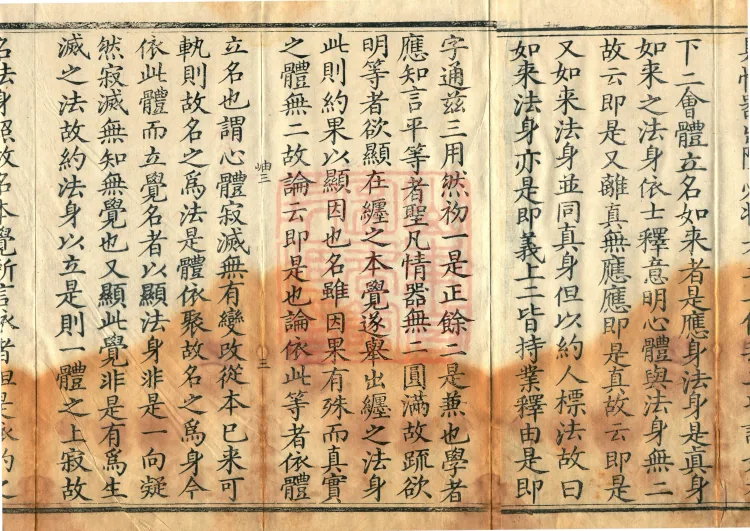 下二會體立名如來者是應身法身是真身
如來之法身依士釋意明心體與法身無二
故云即是又離真無應應即是真故云即是
又如來法身並同真身但以約人標法故曰
如來法身亦是即義上二皆持業釋由是即
字通兹三用然初一是正餘二是兼也學者
應知言平等者聖凡情器無二圓滿故疏欲
明等者欲顯在纏之本覺遂舉出纏之法身
此則約果以顯因也名雖因果有殊而真實
之體無二故論云即是也論依此等者依體
岫三
三
立名也謂心體寂滅無有變改從本已来可
軌則故名之爲法是體依聚故名之爲身今
依此體而立覺名者以顯法身非是一向凝
然寂滅無知無覺也又顯此覺非是有爲生
滅之法故約法身以立是則一體之上寂故
名法身照故名本覺所言依者但是依約之